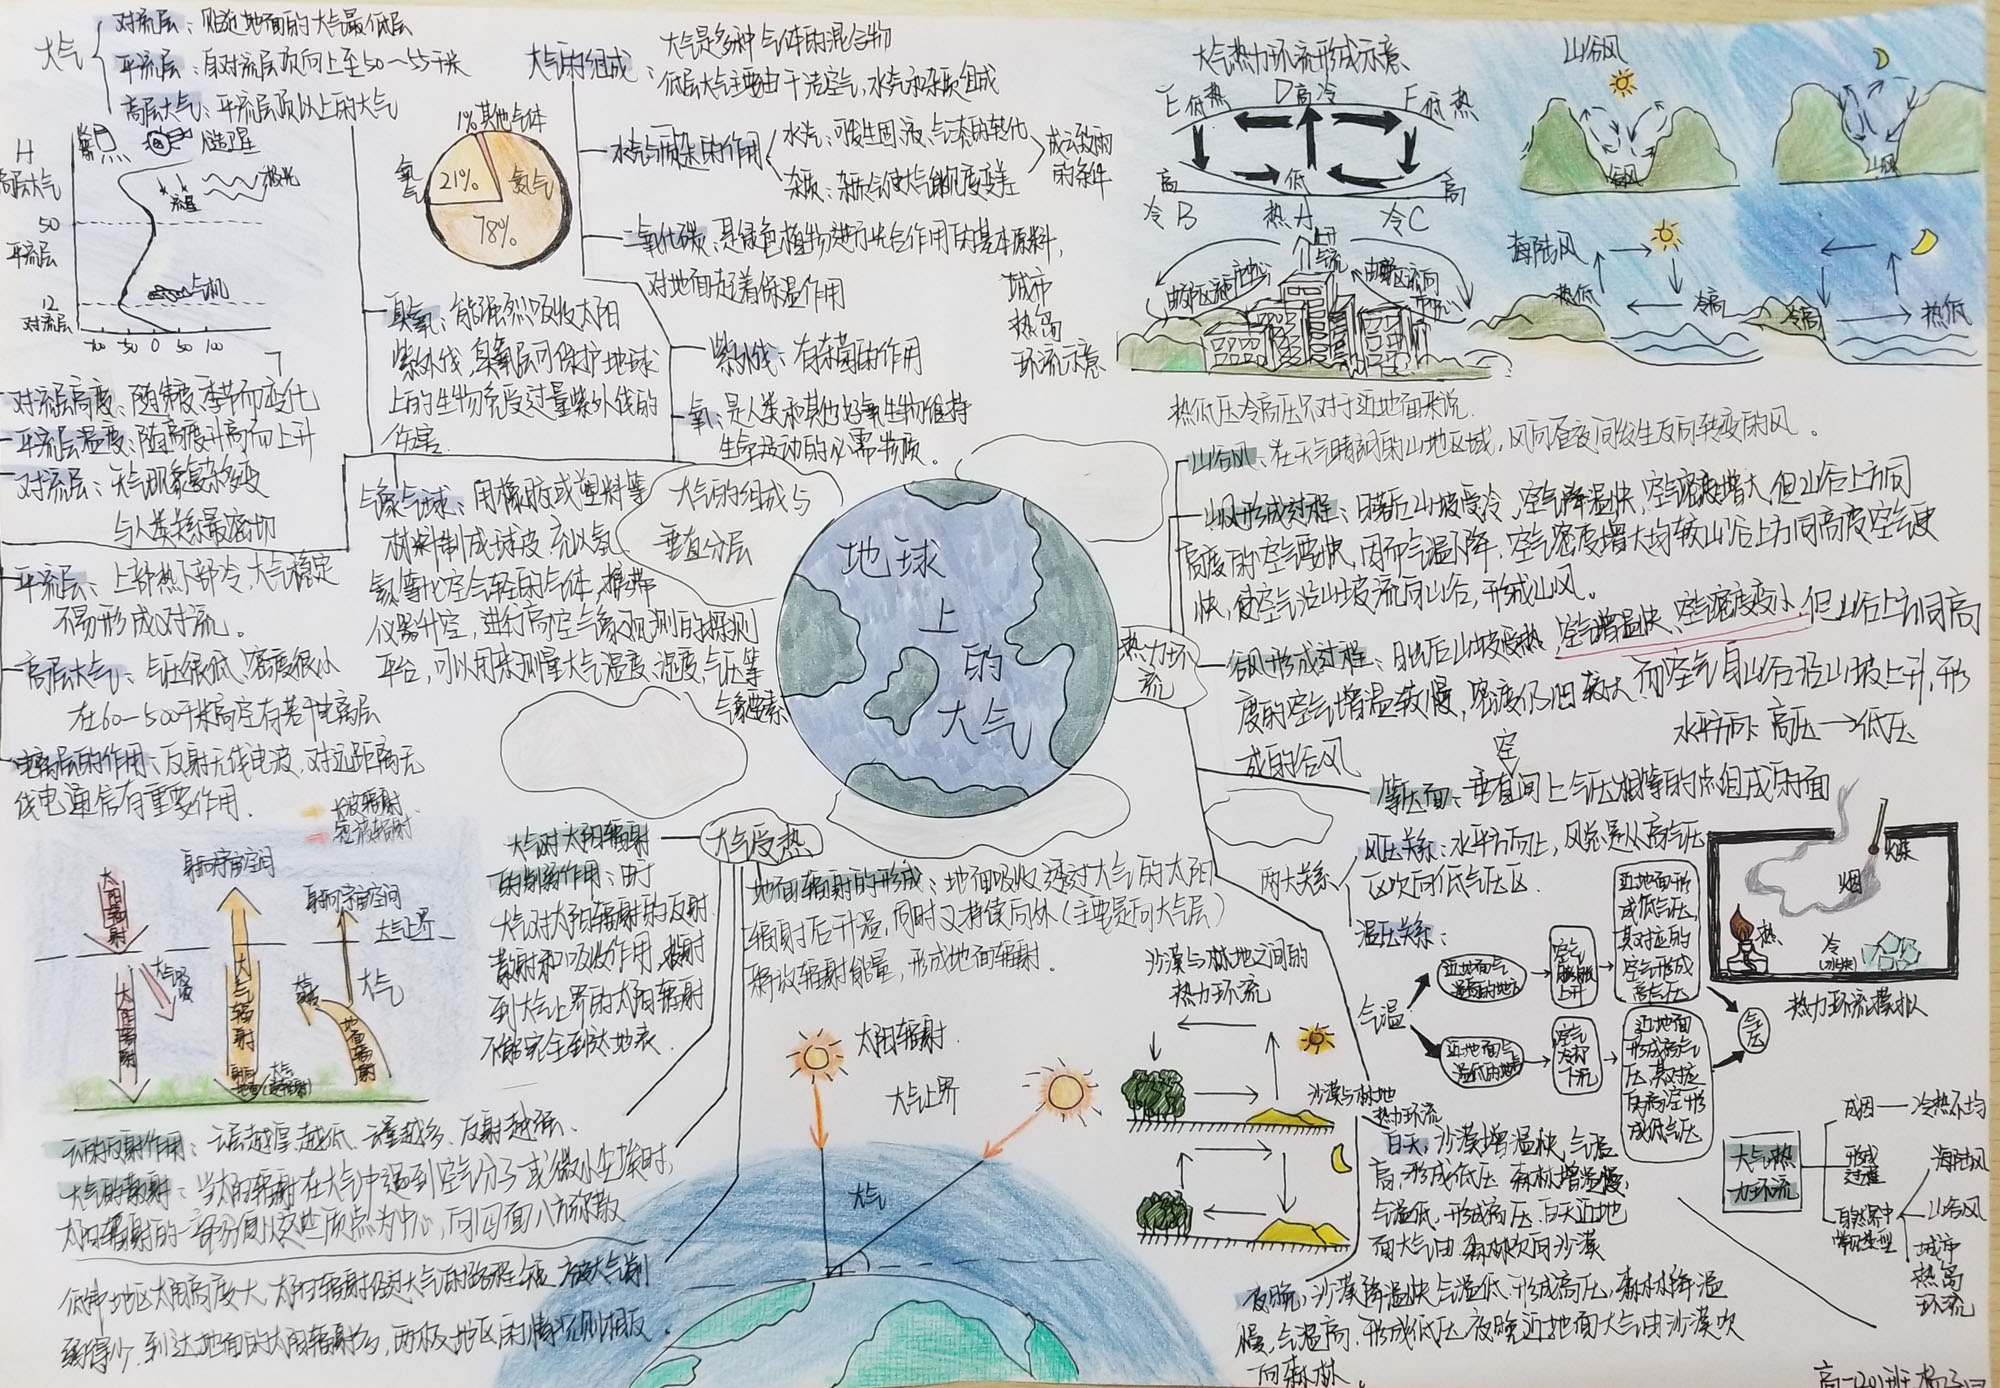 大气
对流层：贴近地面的大气最低层
平流层：自对流层顶向上至50~55千米
高层大气：平流层顶以上的大气
H
高层大气
50
平流层
12
对流层
流星
极光
50 0 50 100
T
对流层高度：随纬度、季节而变化
平流层温度：随高度升高而上升
对流层：天气现象复杂多变
与人类关系最密切
平流层：上部热下部冷，大气稳定
不易形成对流。
高层大气：气压很低、密度很小
在60—500千米高空有若干电离层
电离层的作用：反射无线电波，对远距离无
线电通信有重要作用.
大气的组成：
大气是多种气体的混合物
低层大气主要由干洁空气，水汽和杂质组成
1%其他气体
氧气
21%
氮气
78%
水汽与杂质的作用
水汽：可发生固、液、气态的转化
杂质：杂质使大气能见度变差
成云致雨
的条件
二氧化碳：是绿色植物进行光合作用的基本原料，
对地面起着保温作用
臭氧：能强烈吸收太阳
紫外线，臭氧层可保护地球
上的生物免受过量紫外线的
伤害.
紫外线：有杀菌的作用
氧：是人类和其他好氧生物维持
生命活动的必需物质。
气象气球：用橡胶或塑料等
材料制成球皮，充以氢、
氦等比空气轻的气体，携带
仪器升空，进行高空气象观测的探测
平台，可以用来测量大气温度、湿度、气压等
气象要素
大气的组成与
垂直分层
地球
上
的
大气
热力环
流
大气受热
大气热力环流形成示意
E低热
D高冷
F低热
高
低
高
冷B
热A
冷C
山谷风
谷风
山风
城市
热岛
环流示意
海陆风
热低
冷高
冷高
热低
热低压冷高压只对于近地面来说.
山谷风：在天气晴朗的山地区域，风向昼夜间发生反向转变的风。
山风形成过程：日落后山坡受冷，空气降温快，空气密度增大，但山谷上方同
高度的空气要快，因而气温下降，空气密度增大均较山谷上方同高度空气更
快，使空气沿山坡流向山谷，形成山风。
谷风形成过程：日出后山坡受热，空气增温快、空气密度变小，但山谷上方同高
度的空气增温较慢，密度仍旧较大，而空气自山谷沿山坡上升，形
成的谷风
水平方向：高压→低压
等压面：垂直空间上气压相等的点组成的面
两大关系
风压关系：水平方向上，风总是从高气压
区吹向低气压区.
温压关系：
气温
近地面气
温高的地方
空气
膨胀
上升
近地面形
成低气压，
其对应的
空气形成
高气压
近地面气
温低的地方
空气
冷却
下沉
近地面
形成高气
压，其对应
的高空形
成低气压
气压
烟
热
冷
(冰块)
热力环流模拟
长波辐射
短波辐射
射向宇宙空间
射向宇宙空间
大气上界
太阳辐射
太阳辐射
大气吸收
大气辐射
大气
地面辐射
射向地面
大气对太阳辐射
的削弱作用：由于
大气对太阳辐射的反射、
散射和吸收作用，投射
到大气上界的太阳辐射
不能完全到达地表.
地面辐射的形成：地面吸收透过大气的太阳
辐射后升温，同时又持续向外（主要是向大气层）
释放辐射能量，形成地面辐射.
太阳辐射
大气上界
大气
云的反射作用：云层越厚越低、云量越多、反射越强.
大气的散射：当太阳辐射在大气中遇到空气分子或微小尘埃时，
太阳辐射的一部分便以这些质点为中心，向四面八方弥散
低纬地区太阳高度大，太阳辐射经过大气的路程短，被大气削
弱得少，到达地面的太阳辐射多，两极地区的情况则相反.
沙漠与林地之间的
热力环流
沙漠与林地
热力环流
白天，沙漠增温快，气温
高，形成低压，森林增温慢，
气温低，形成高压.白天近地
面大气由森林吹向沙漠
夜晚，沙漠降温快气温低，形成高压，森林降温
慢，气温高，形成低压，夜晚近地面大气由沙漠吹
向森林.
大气热
力环流
成因——冷热不均
形成
过程
自然界中
常见类型
海陆风
山谷风
城市
热岛
环流